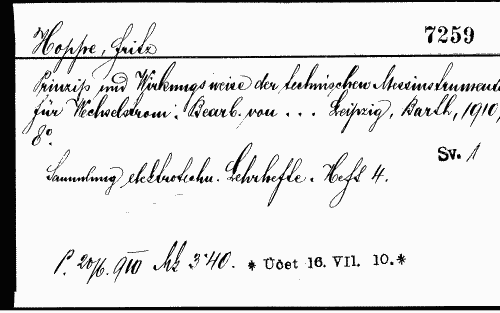 Hoppe, Fritz
7259
Prinzip und Wirkungsweise der technischen Messinstrumente
für Wechselstrom. Bearb. von ... Leipzig, Barth, 1910,
8°.
Sv. 1
Sammlung elektrotechn. Lehrhefte. Heft 4.
Mk 3·40. * Účet 16. VII. 10. *